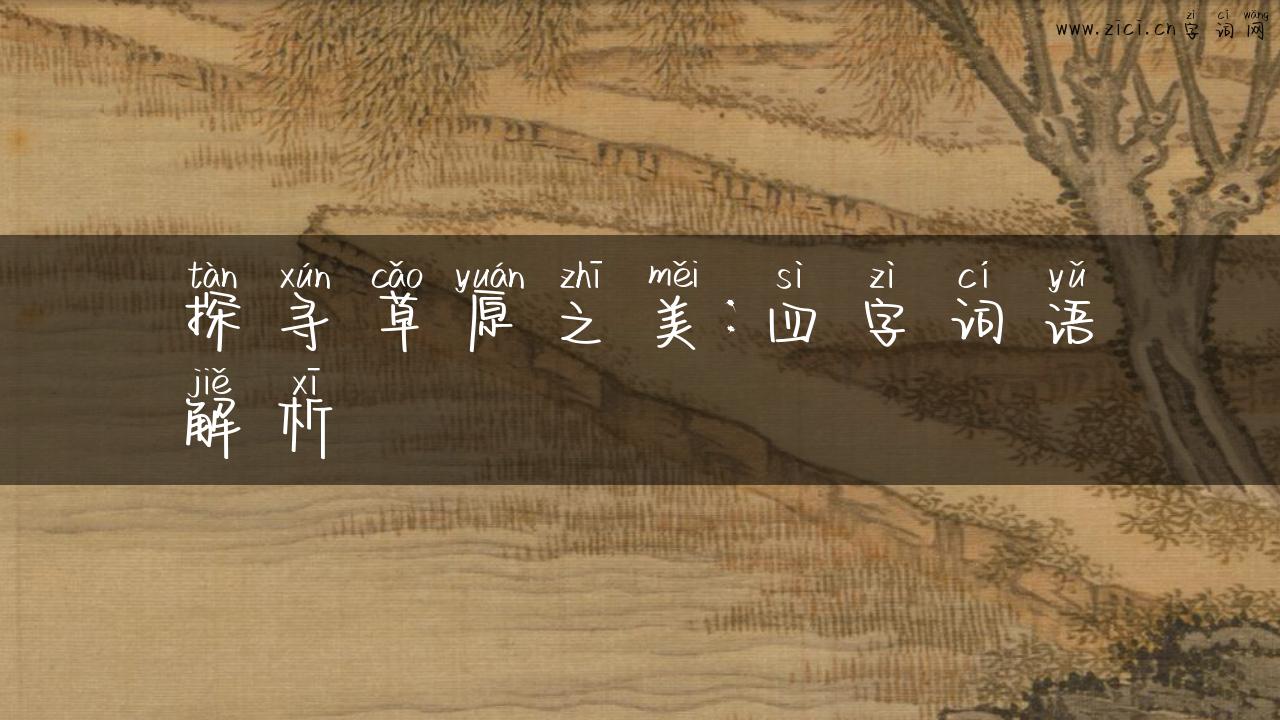 zì cí wǎng
www.zici.cn字词网
tàn xún cǎo yuán zhī měi sì zì cí yǔ
探寻草原之美：四字词语
jiě xī
解析